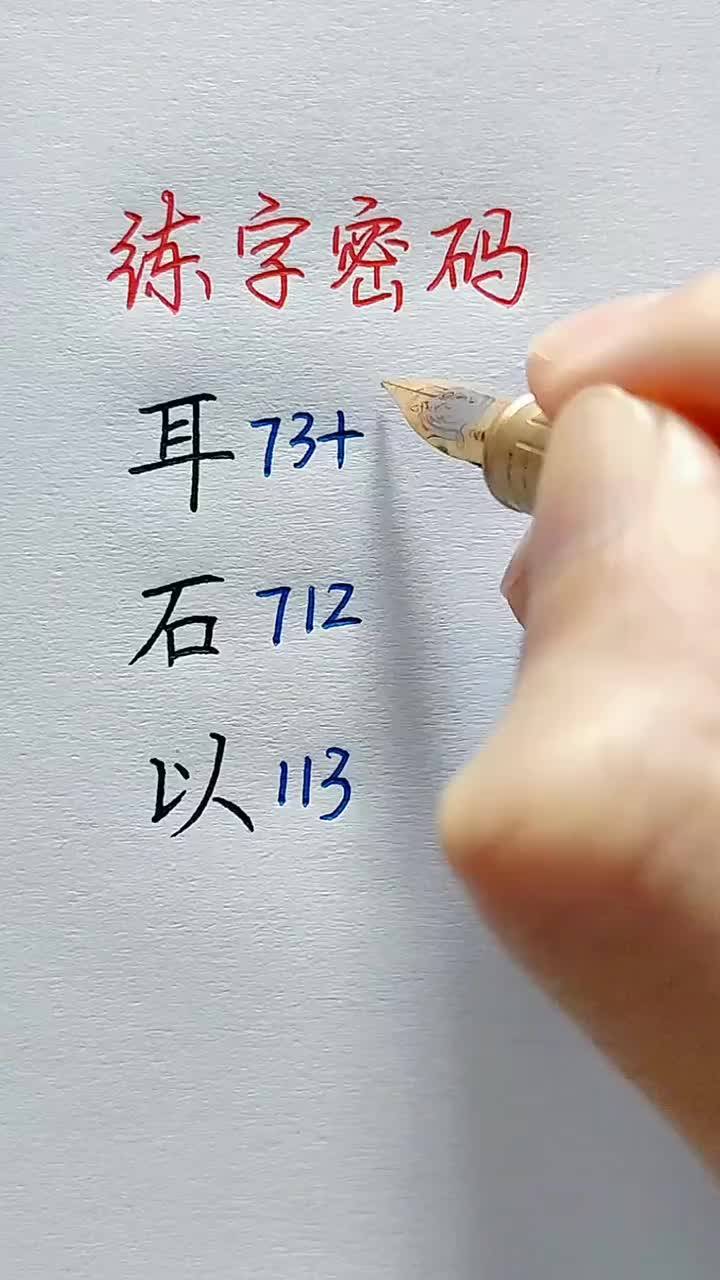 练字密码
耳 73+
石 712
以 113